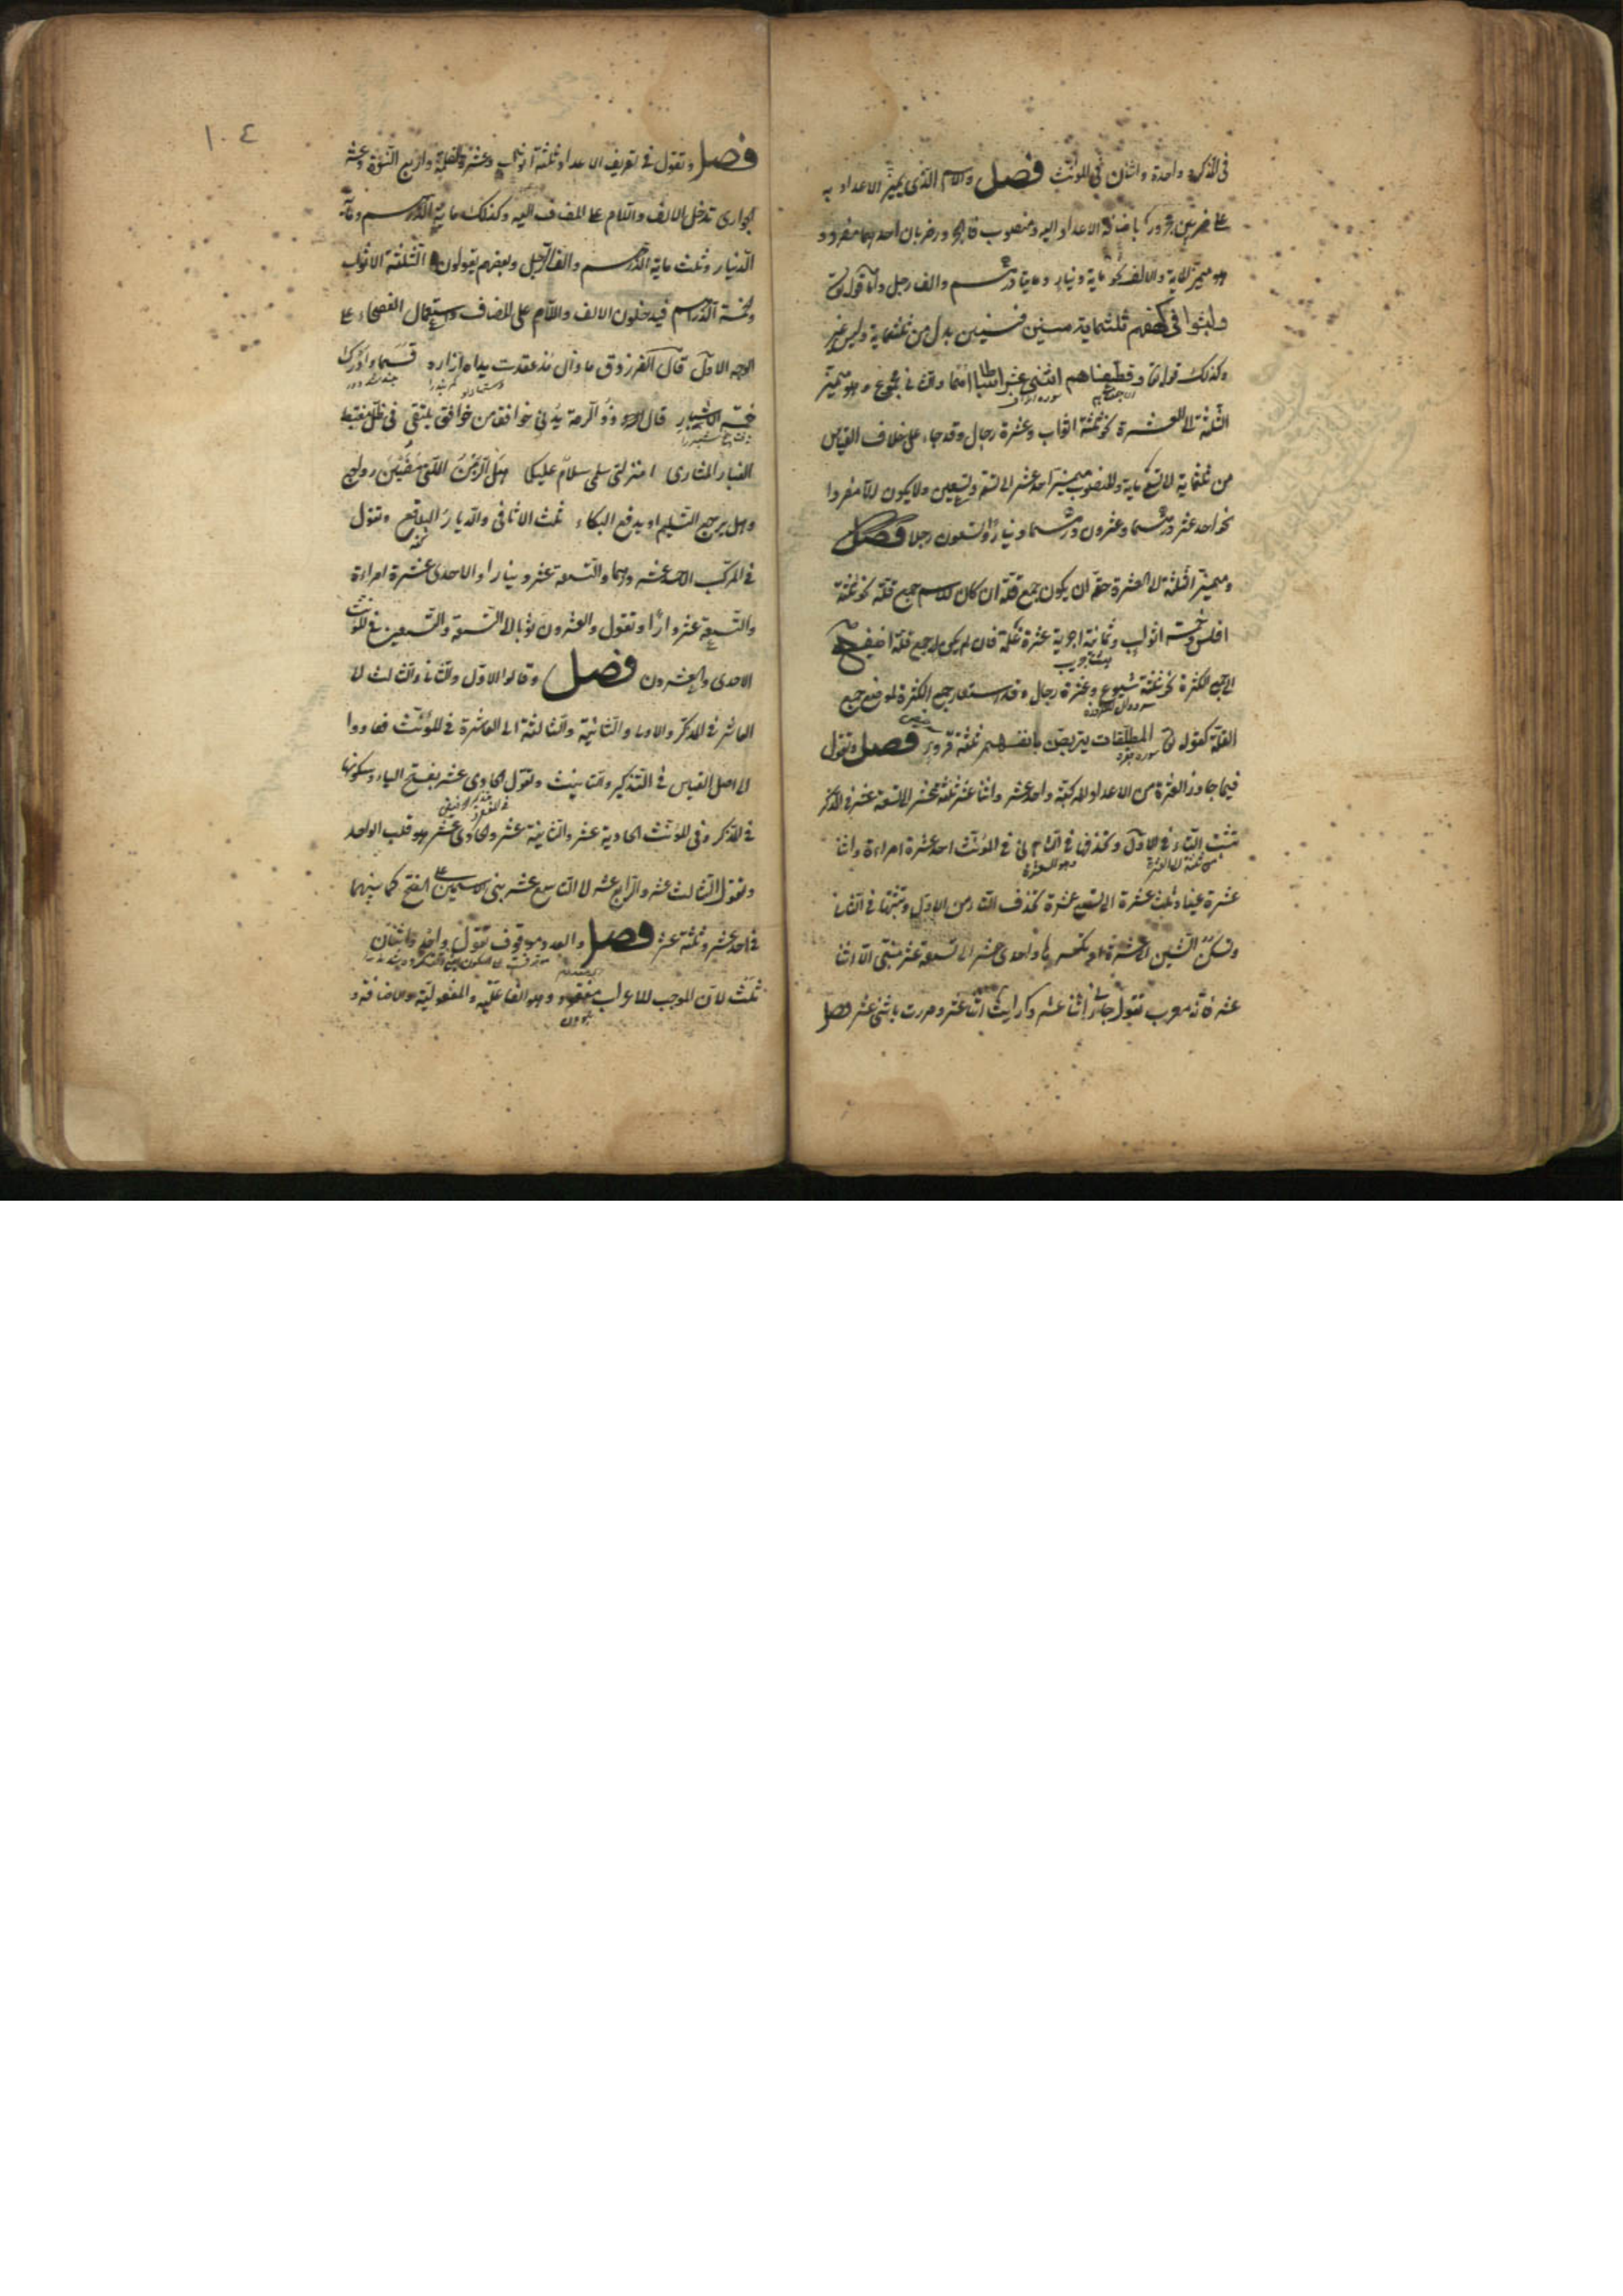 فى المذكر و واحدة واثنتان فى المؤنث فصل والاسم الذى يميز الاعداد به
على ضربين مجرور باضافة الاعداد اليه ومنصوب فالمجرور ضربان احدهما مفرد و
هو مميز الماية والالف نحو ماية دينار ومايتا درهم والف رجل واما قوله تع
ولبثوا فى كهفهم ثلثماية سنين فسنين بدل من ثلثماية وليس بمميز
وكذلك قوله تع وقطعناهم اثنتى عشرة اسباطا امما والثانى مجموع وهو مميز
الثلثة الى العشرة نحو ثلثة اثواب وعشرة رجال وقد جاء على خلاف القياس
من ثلثماية الى تسعماية والمنصوب مميز احد عشر الى تسعة وتسعين ولا يكون الا مفردا
نحو احد عشر درهما وعشرون درهما ودينارا وتسعون رجلا فصل
ومميز الثلثة الى العشرة حقه ان يكون جمع قلة ان كان للاسم جمع قلة نحو ثلثة
افلس وخمسة اثواب وثمانية اجربة وعشرة غلمة فان لم يكن له جمع قلة اضيف
الى جمع الكثرة نحو ثلثة شسوع وعشرة رجال وقد استعار جمع الكثرة لموضع جمع
القلة كقوله تع والمطلقات يتربصن بانفسهن ثلثة قروء فصل وتقول
فيما جاوز العشرة من الاعداد المركبة واحد عشر واثنا عشر وثلثة عشر الى تسعة عشر فى المذكر
تثبت التاء فى الاول وتحذف فى الثانى وفى المؤنث احدى عشرة امراءة واثنتا
عشرة عينا وثلث عشرة الى تسع عشرة تحذف التاء من الاول وتثبتها فى الثانى
وتسكن الشين من عشرة او تكسرها واحدى عشر الى تسعة عشر مبنى الا اثنا
عشر فانه معرب تقول جاءنى اثنا عشر ورايت اثنى عشر ومررت باثنى عشر فصل
١٠٤
فصل وتقول فى تعريف الاعداد ثلثة الاثواب وعشرة الغلمة واربع النسوة وعشر
الجوارى تدخل الالف واللام على المضاف اليه وكذلك ماية الدرهم وماية
الدينار وثلث ماية الدرهم والف الرجل وبعضهم يقولون الثلثة الاثواب
والخمسة الدراهم فيدخلون الالف واللام على المضاف واستعمال الفصحاء على
الوجه الاول قال الفرزدق ما زال مذ عقدت يداه ازاره فسما وادرك
خمسة الاشبار قال ذو الرمة
امنزلتى مى سلام عليكما هل الازمن اللاتى مضين رواجع
وهل يرجع التسليم او يدفع البكاء ثلث الاثافى والديار البلاقع وتقول
فى المركب الاحد عشر درهما والتسعة عشر دينارا والاحدى عشرة امراءة
والتسع عشرة دارا وتقول والعشرون ثوبا الى التسعة والتسعين وفى المؤنث
الاحدى والعشرون فصل وقالوا الاول والثانى والثالث الى
العاشر فى المذكر والاولى والثانية والثالثة الى العاشرة فى المؤنث فعادوا
الى اصل القياس فى التذكير والتانيث وتقول الحادى عشر بفتح الياء وسكونها
فى المذكر وفى المؤنث الحادية عشر والثانية عشر والحادى عشر هو قلب الواحد
وتقول الثالث عشر والرابع عشر الى التاسع عشر بنى الاسمين على الفتح كما بنيتهما
فى احد عشر وثلثة عشر فصل والعدد موقوف تقول واحد واثنان
ثلث لان الموجب للاعراب مفقود وهو الفاعلية والمفعولية والاضافة و